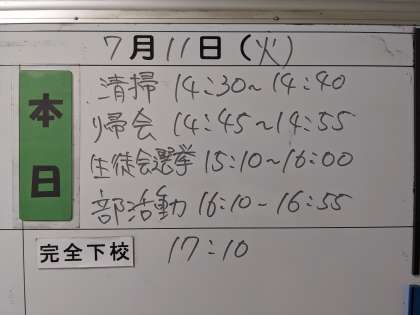 7月11日(火)
本日
清掃 14:30~14:40
帰会 14:45~14:55
生徒会選挙 15:10~16:00
部活動 16:10~16:55
完全下校 17:10